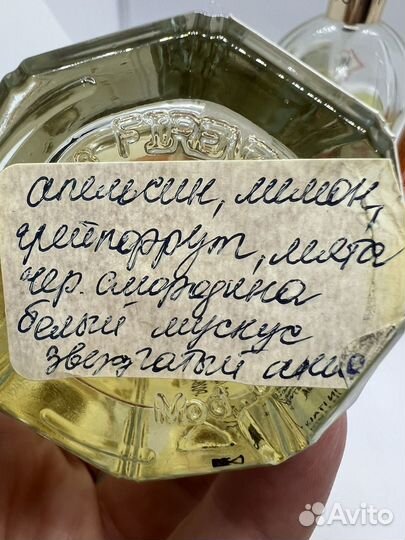 FIRE
апельсин, лимон,
грейпфрут, мята
чер. смородина
белый мускус
звёздчатый анис
Mod
Avito